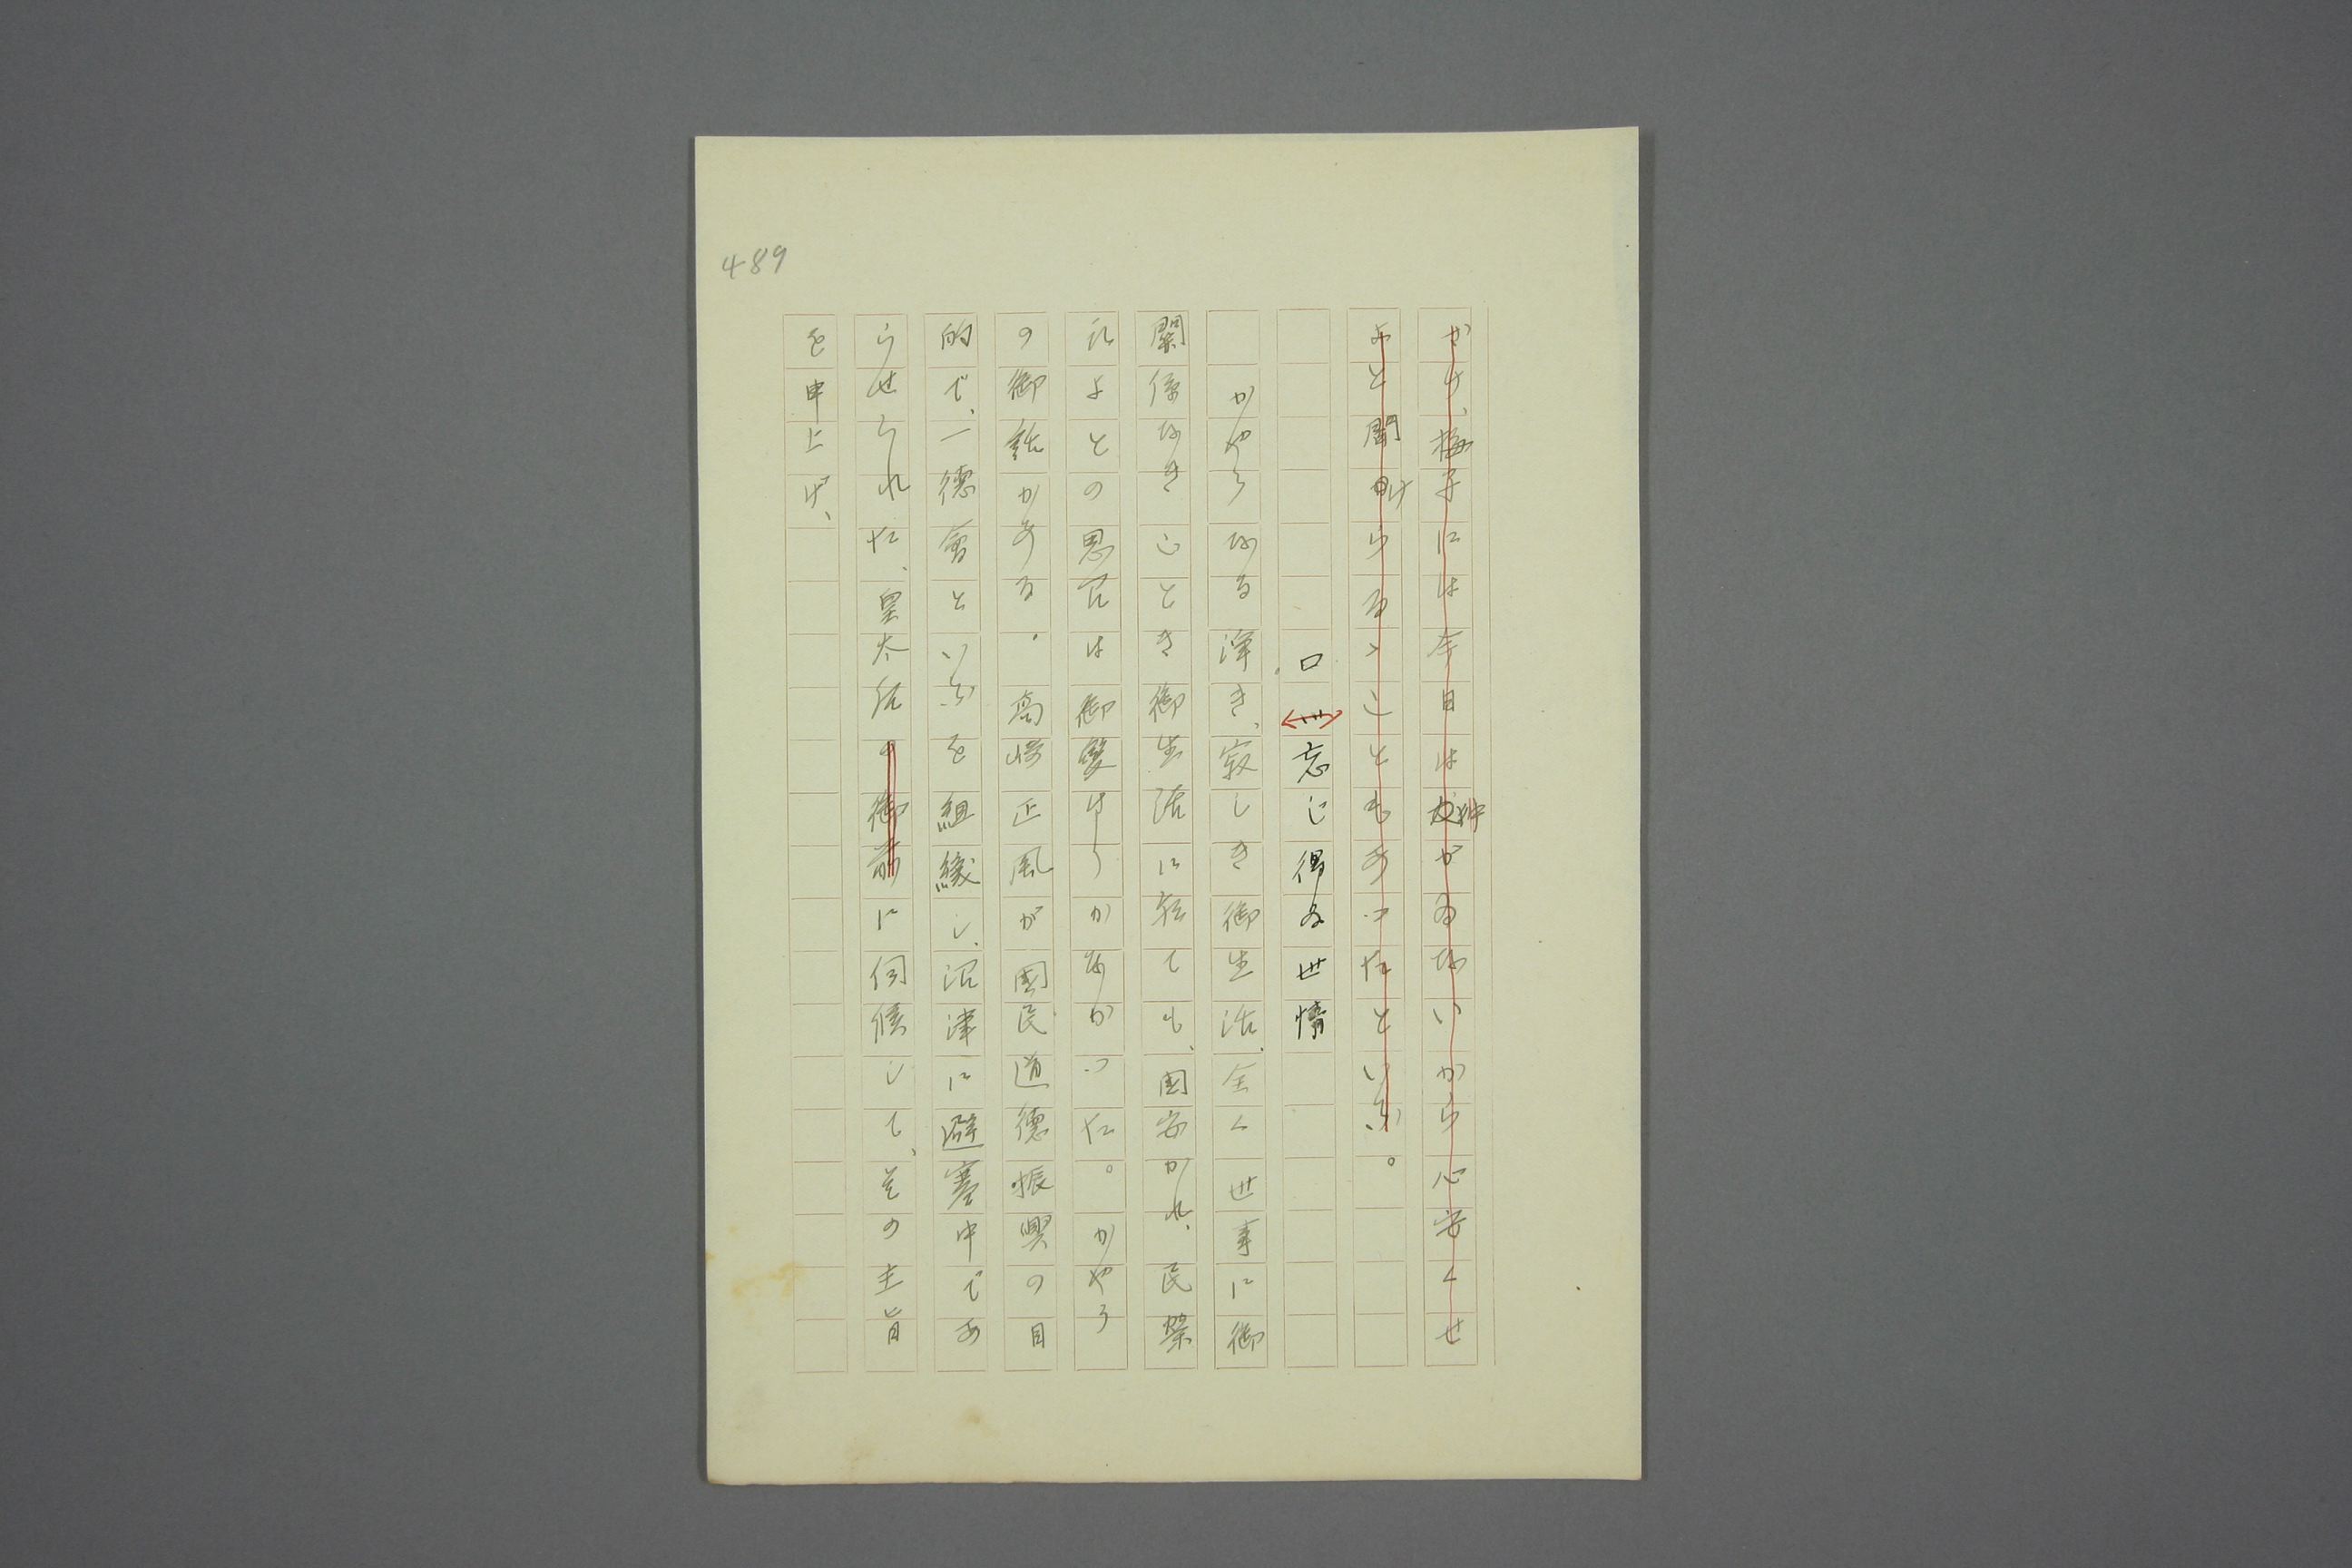 489
かけ、梅子には今日は女神がゐないから心安くせ
よと聞かけらるゝこともあつたといふ。
口 忘じ得ぬ世情
かやうなる淨き、寂しき御生活、全く世事に御
關係なきごとき御生活に轉ても、國安かれ、民榮
えよとの思召は御變はりがなかつた。かやう
の御話がある。高崎正風が國民道德振興の目
的で、一德會といふを組織し、沼津に避寒中であ
らせられた、皇太后の御前に伺候して、その主旨
を申上げ、